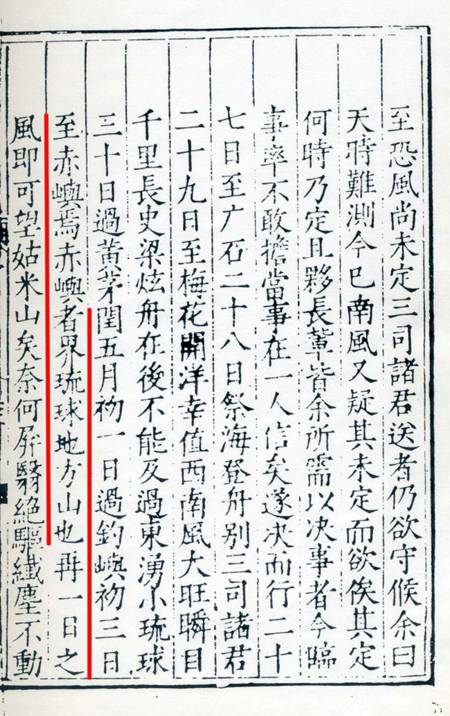 至恐風尚未定三司諸君送者仍欲守候余曰
天時難測今已南風又疑其未定而欲俟其定
何時乃定且夥長軰皆余所需以决事者今臨
事率不敢擔當事在一人信矣遂决而行二十
七日至广石二十八日祭海登舟别三司諸君
二十九日至梅花開洋幸值西南風大旺瞬目
千里長史梁炫舟在後不能及過東湧小琉球
三十日過黃茅閏五月初一日過釣嶼初三日
至赤嶼焉赤嶼者界琉球地方山也再一日之
風即可望姑米山矣奈何屏翳絕驅纖塵不動